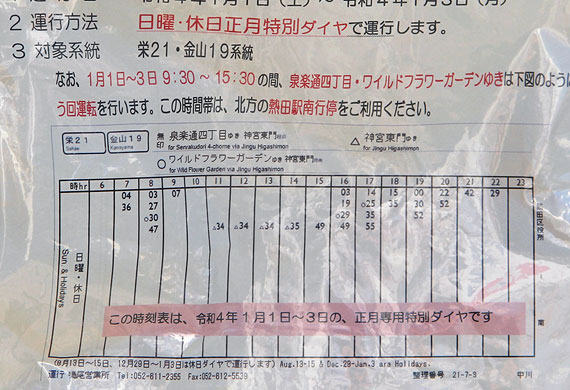 2 運行方法　日曜・休日正月特別ダイヤで運行します。
3 対象系統　栄21・金山19系統
なお、1月1日~3日 9:30 ~ 15:30 の間、泉楽通四丁目・ワイルドフラワーガーデンゆきは下図のように
う回運転を行います。この時間帯は、北方の熱田駅南行停をご利用ください。
栄21 Sakae 金山19 Kanayama 無印 泉楽通四丁目ゆき 神宮東門経由 △ 神宮東門ゆき
for Senrakudori 4-chome via Jingu Higashimon for Jingu Higashimon
○ ワイルドフラワーガーデンゆき 神宮東門経由
for Wild Flower Garden via Jingu Higashimon
時hr 6 7 8 9 10 11 12 13 14 15 16 17 18 19 20 21 22 23
04 03 07 03 14 15 00 22 42 29
36 27 19 ○25 35 22 52
○30 ○29 35 52
47 △34 △34 △34 △35 49 49 55
日曜・休日
Sun & Holidays
熱田区役所
南
この時刻表は、令和4年1月1日~3日の、正月専用特別ダイヤです
(8月13日~15日、12月29日~1月3日は休日ダイヤで運行します) Aug.13-15 & Dec.29-Jan.3 are Holidays.
運行:鳴尾営業所 Tel:052-611-2355 Fax:052-612-5539 整理番号 21-7-3 中川